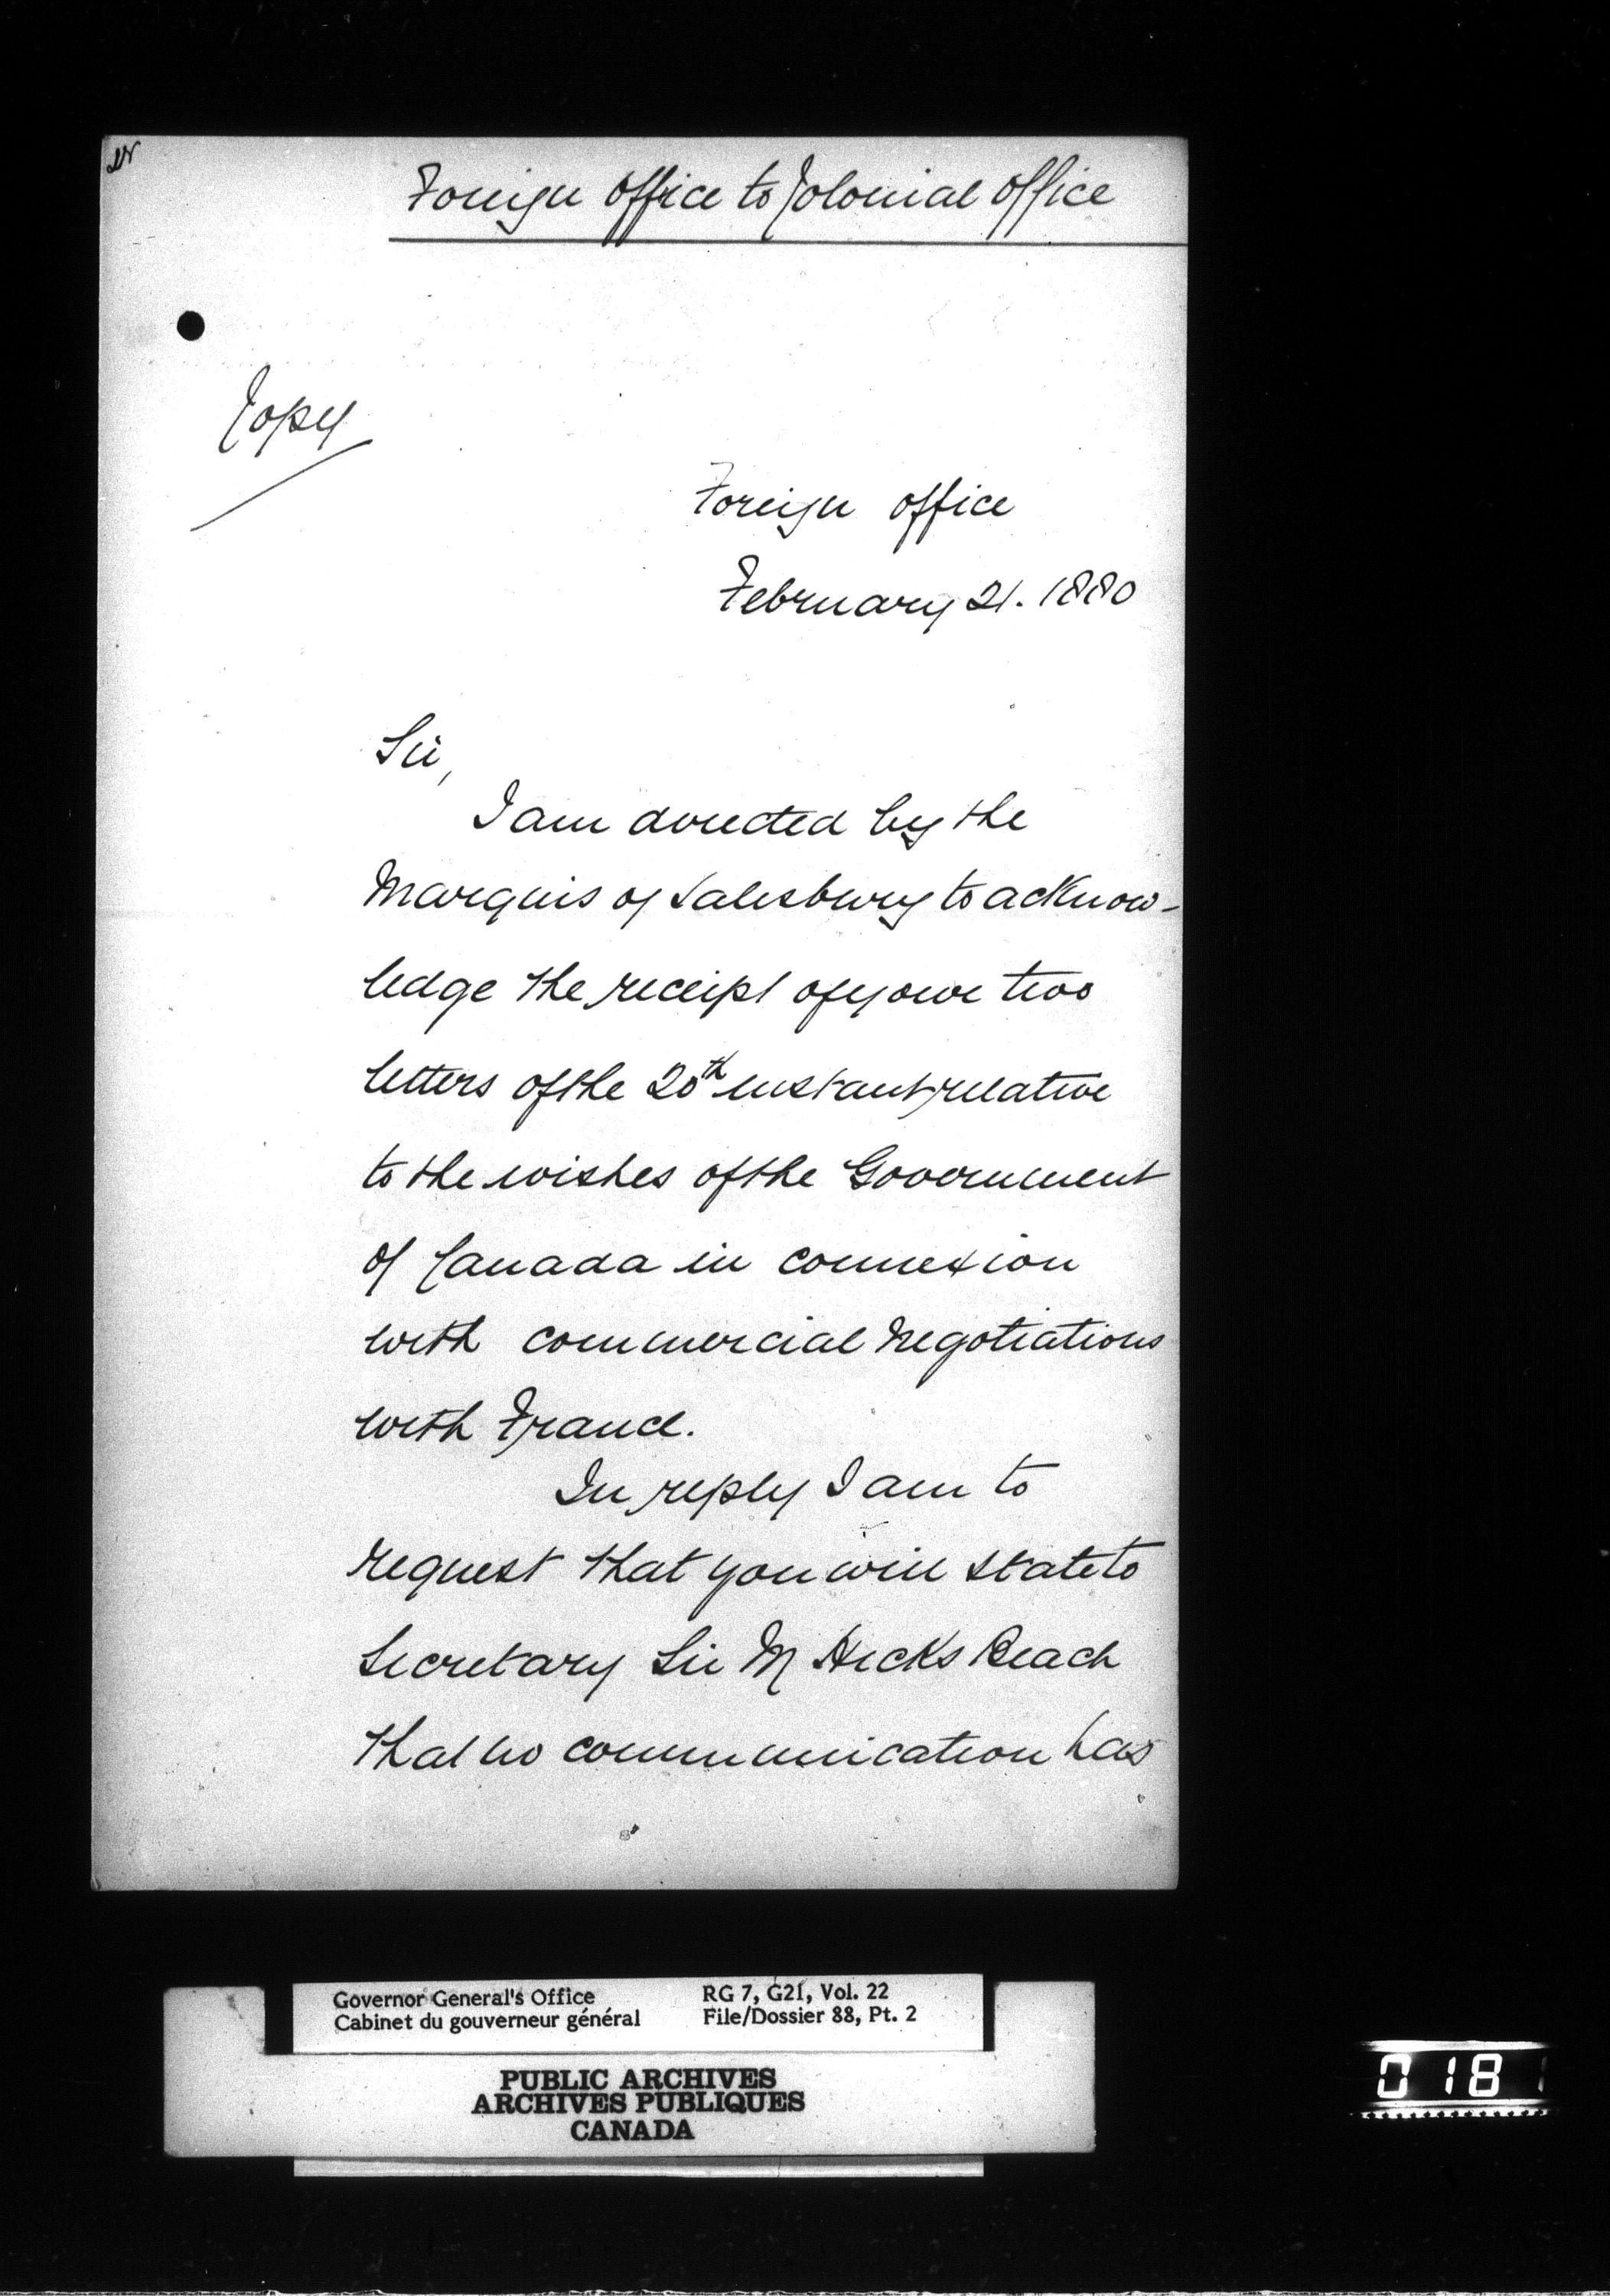 Foreign Office to Colonial Office
Copy
Foreign Office
February 21. 1880
Sir,
I am directed by the
Marquis of Salisbury to acknow-
ledge the receipt of your two
letters of the 20th instant relative
to the wishes of the Government
of Canada in connexion
with commercial negotiations
with France.
In reply I am to
request that you will state to
Secretary Sir M Hicks Beach
that no communication has
Governor General's Office
Cabinet du gouverneur général
RG 7, G21, Vol. 22
File/Dossier 88, Pt. 2
PUBLIC ARCHIVES
ARCHIVES PUBLIQUES
CANADA
0181